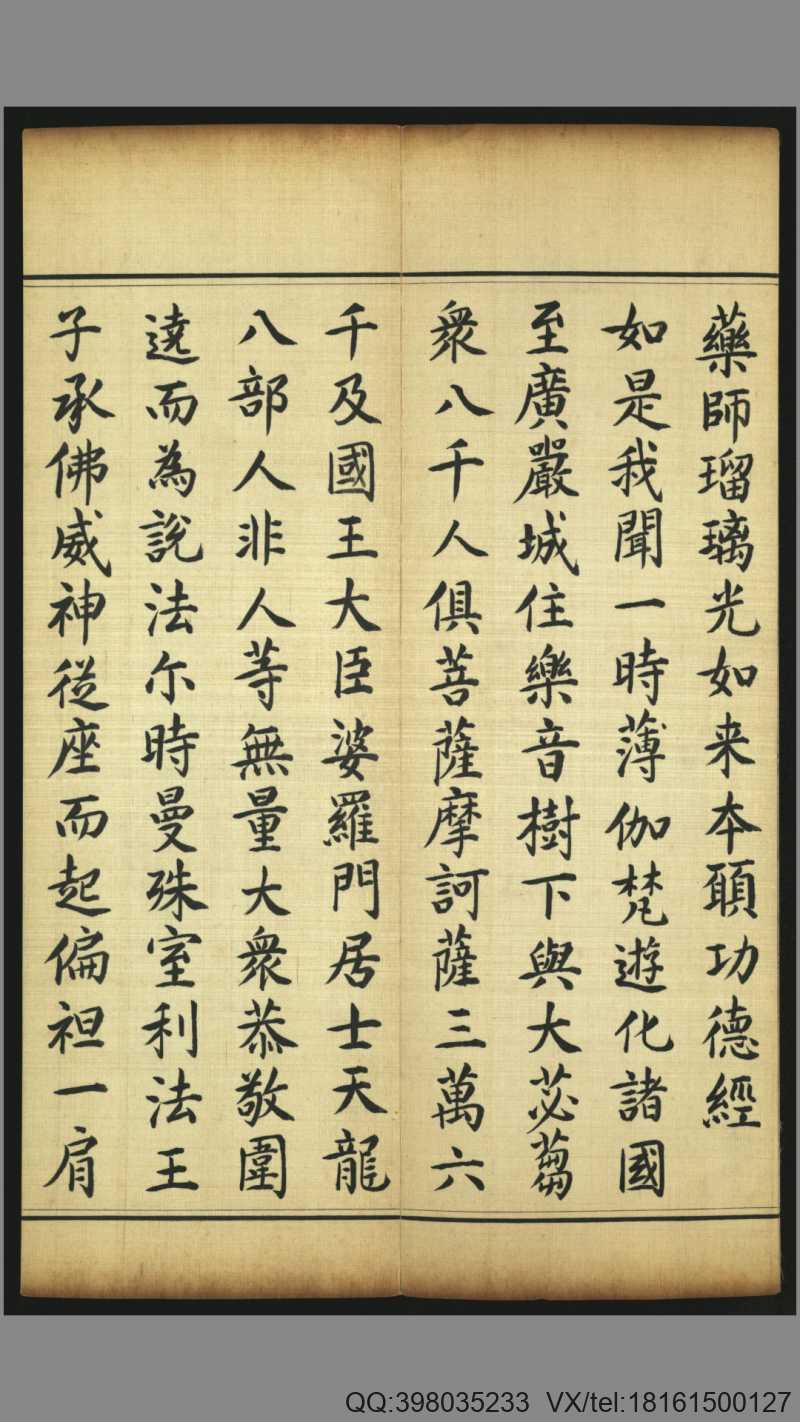 藥師瑠璃光如来本願功德經
如是我聞一時薄伽梵遊化諸國
至廣嚴城住樂音樹下與大苾蒭
衆八千人俱菩薩摩訶薩三萬六
千及國王大臣婆羅門居士天龍
八部人非人等無量大衆恭敬圍
遶而為説法尓時曼殊室利法王
子承佛威神從座而起偏袒一肩
QQ:398035233 VX/tel:18161500127